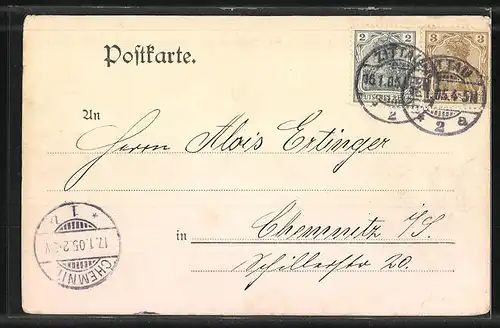 Postkarte.
2
3
ZITTAU
ZITTAU
16.1.05.
1.05.4-5N
* 2 a
An
Herrn Alois Ertinger
in Chemnitz i/S.
Schillerstr 20.
* 1
17.1.05.2-3V
CHEMNITZ